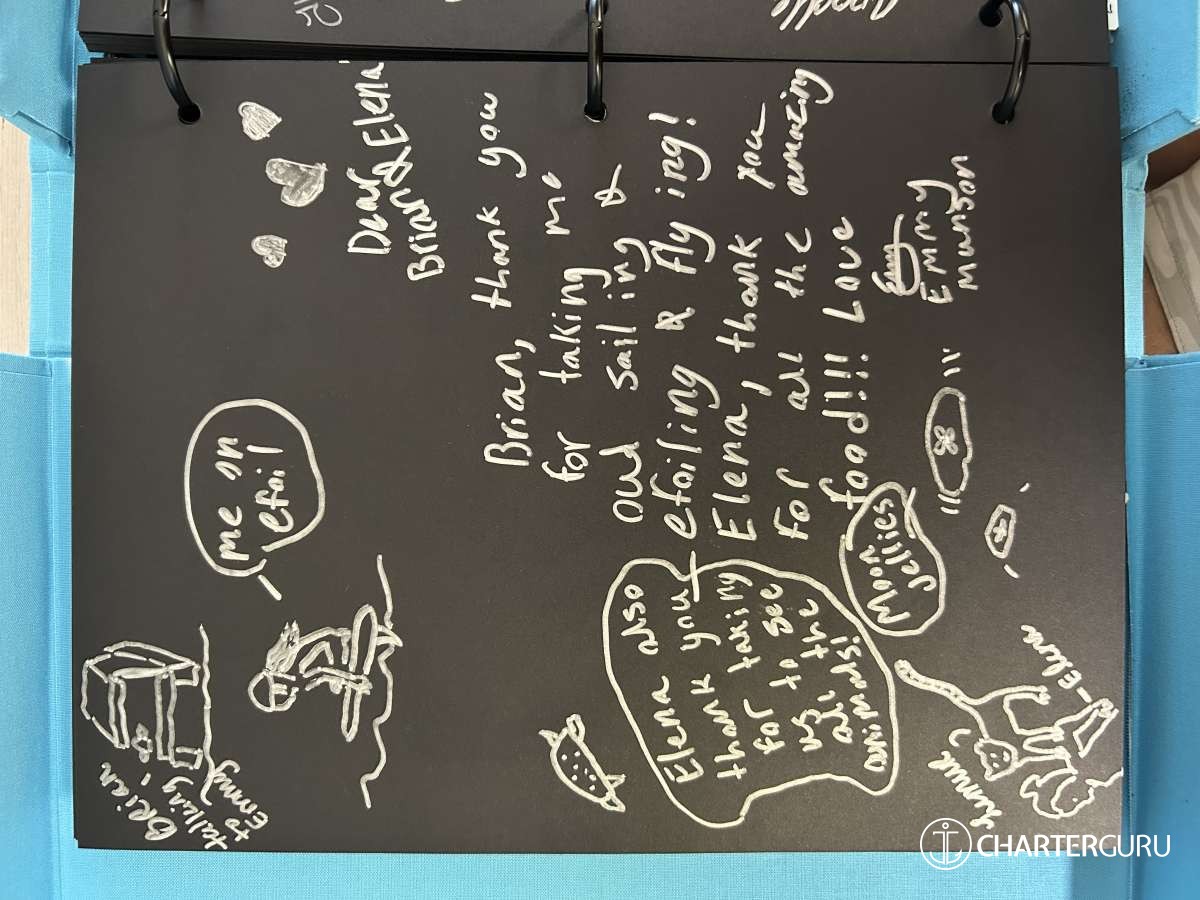 Dear
Brian & Elena
Brian, thank you
for taking me
out sailing &
efoiling & flying!
Elena, thank you
for all the amazing
food!!! Love
Emmy
Emmy
Munson
me on
efoil
Brian
talking
to
Emmy
Elena also
thank you
for taking
us to see
all the
animals!
Moon
Jellies
Elena
CHARTERGURU